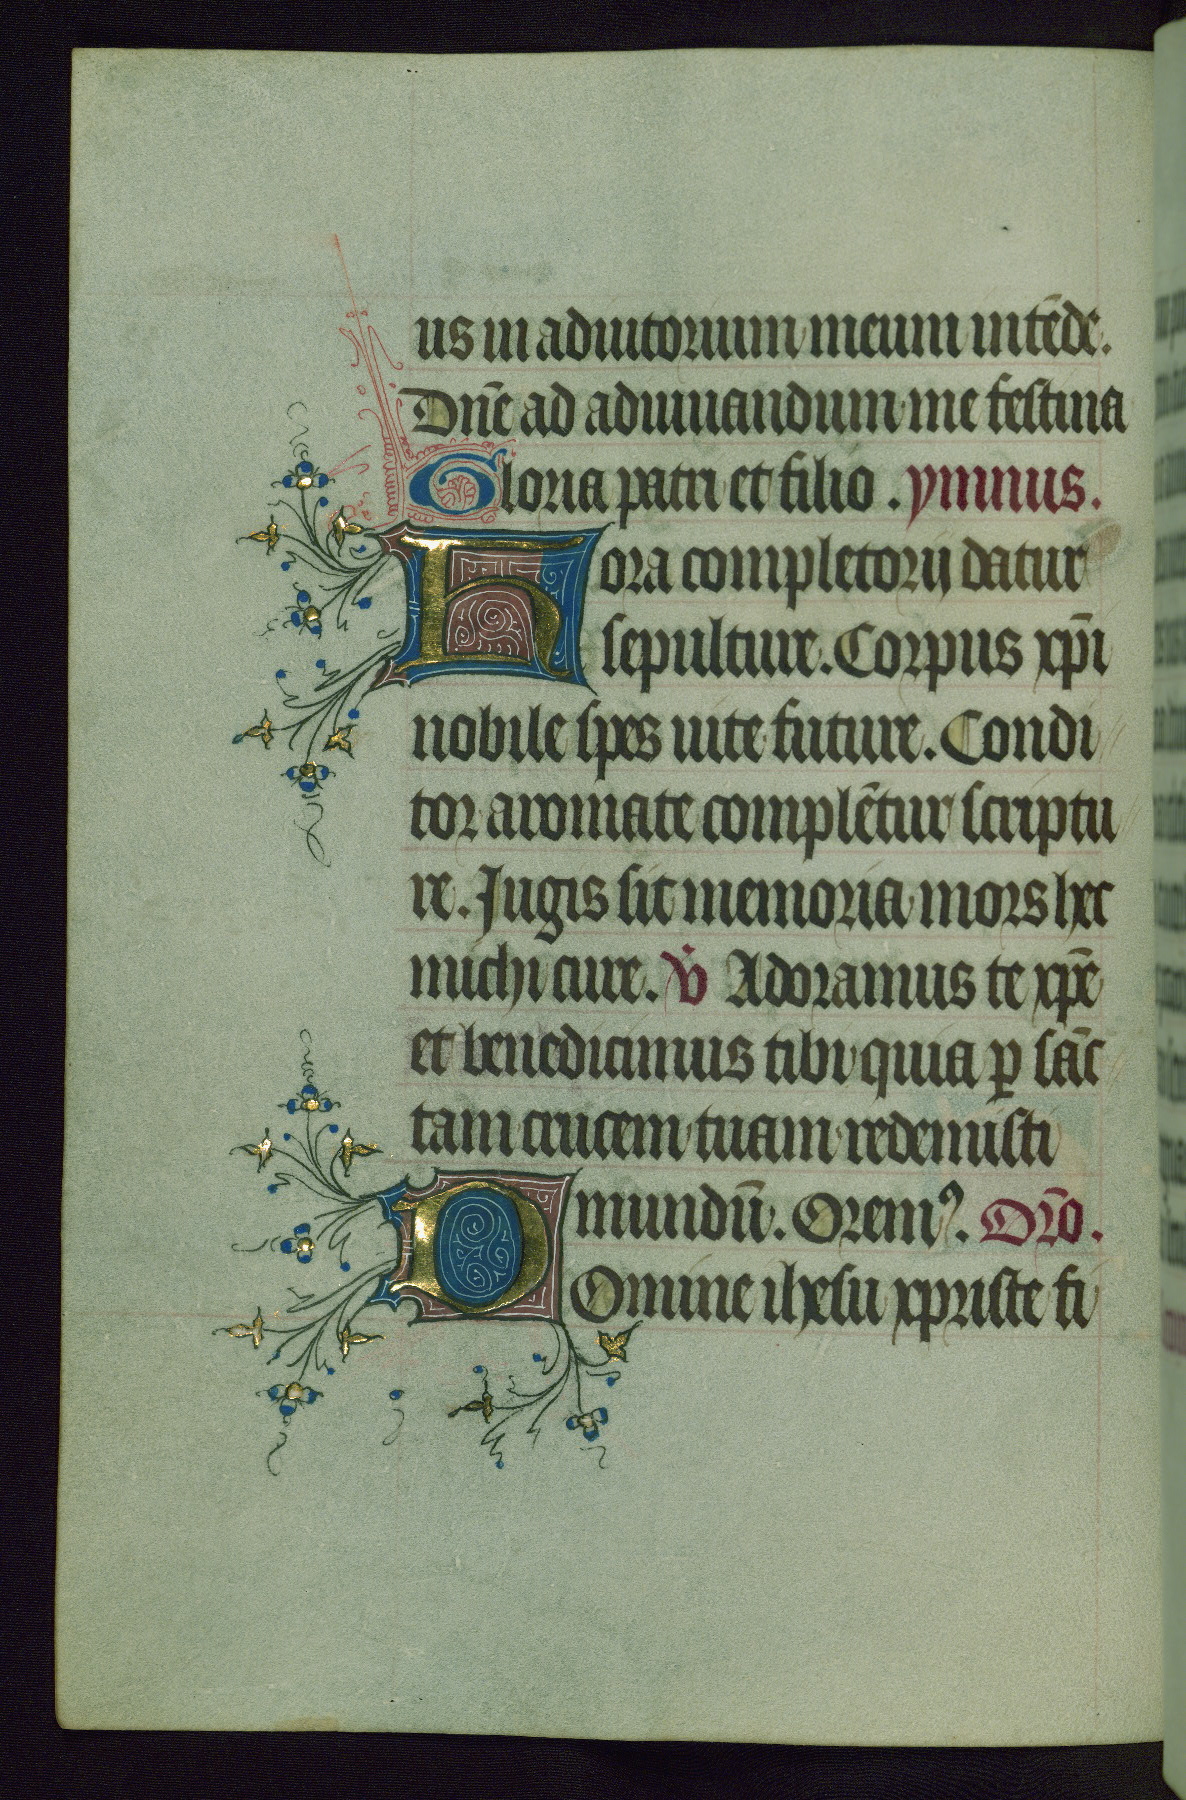 us in adiutorium meum intēde.
Dn̄e ad adiuuandum me festina
Gloria patri et filio . ymnus.
hora completorij datur
sepulture. Corpus xp̄i
nobile spes uite future. Condi
tor aromate complētur scriptu
re. Jugis sit memoria mors hec
michi cure. v̇ Adoramus te xp̄e
et benedicimus tibi quia ꝑ sāc
tam crucem tuam redemisti
mundū. Oremꝰ. Or̄o.
DOmine ihesu xpriste fi